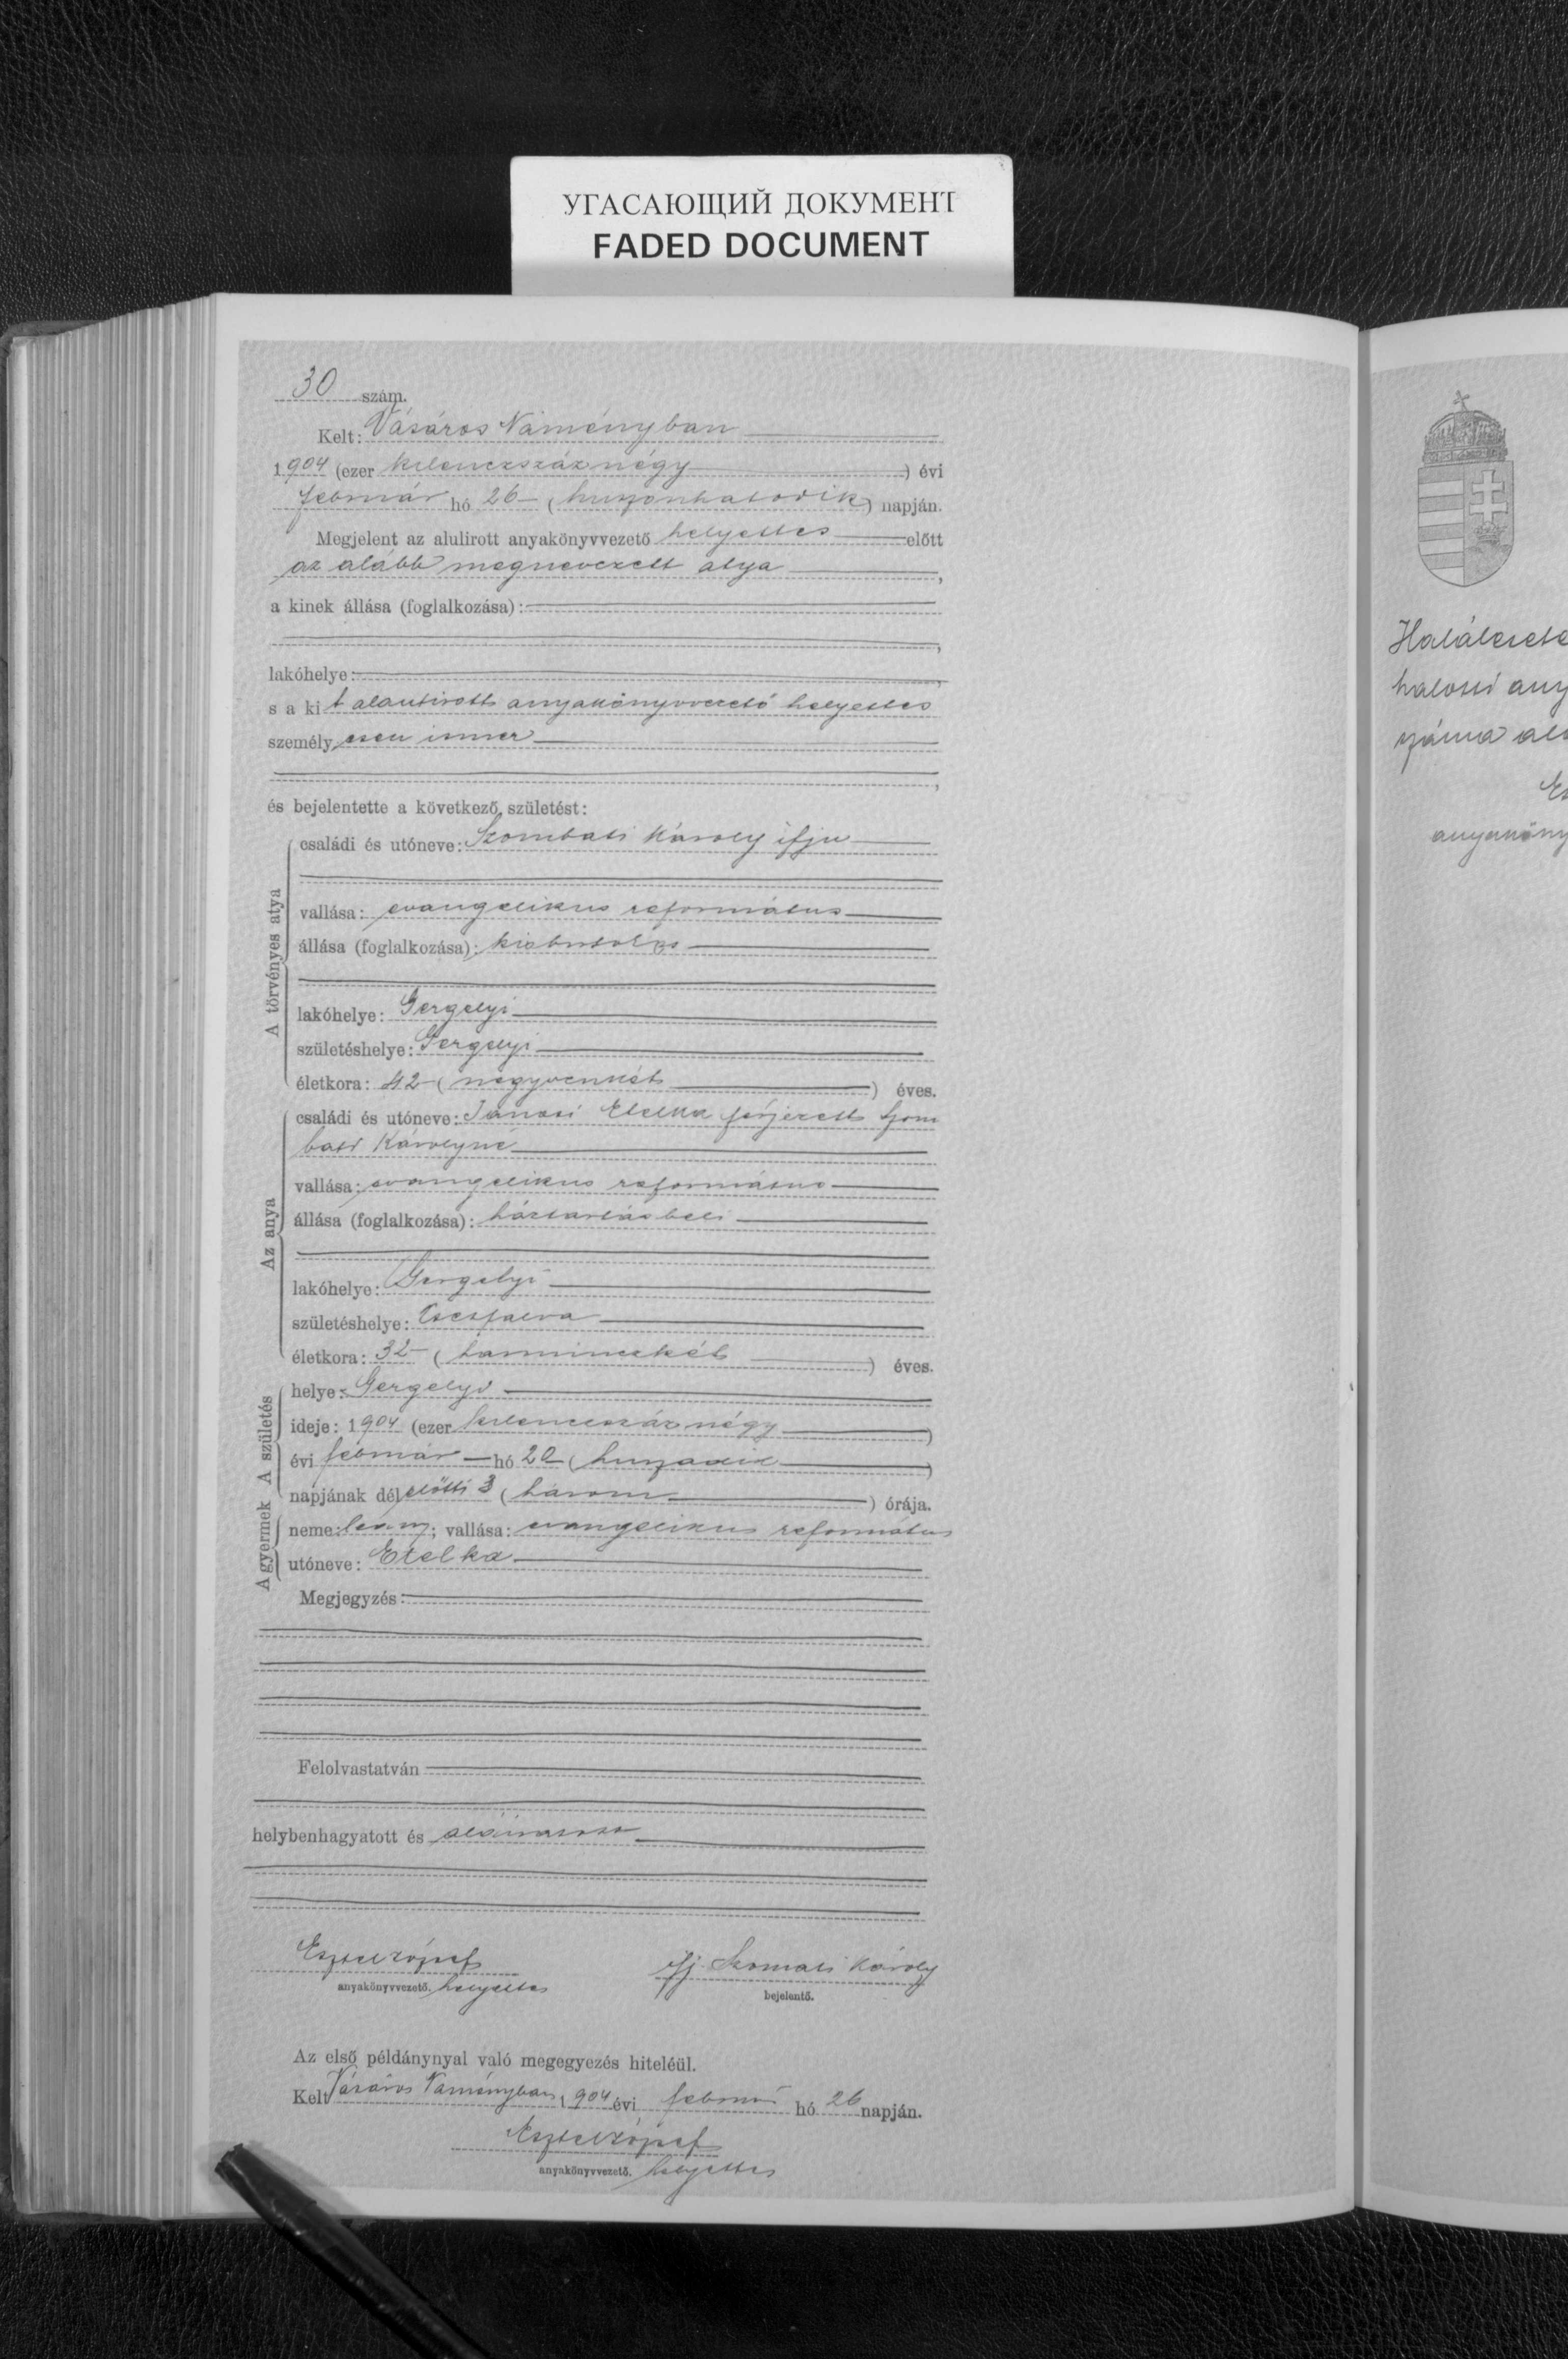 УГАСАЮЩИЙ ДОКУМЕНТ
FADED DOCUMENT
30 szám.
Kelt: Vásáros Naményban
1904 (ezer kilenczszáznégy) évi
február hó 26 (huszonhatodik) napján.
Megjelent az alulirott anyakönyvvezető helyettes előtt
az alább megnevezett atya,
a kinek állása (foglalkozása):
lakóhelye:
s a kit alantirott anyakönyvvezető helyettes
személyesen ismer
és bejelentette a következő születést:
A törvényes atya
családi és utóneve: Szombati Károly ifju
vallása: evangelikus református
állása (foglalkozása): kisbirtokos
lakóhelye: Gergelyi
születéshelye: Gergelyi
életkora: 42 (negyvenkét) éves.
Az anya
családi és utóneve: Jánosi Etelka férjezett Szom
bati Károlyné
vallása: evangelikus református
állása (foglalkozása): háztartásbeli
lakóhelye: Gergelyi
születéshelye:
életkora: 32 (harminczkét) éves.
A születés
helye: Gergelyi
ideje: 1904 (ezer kilenczszáznégy)
évi február hó 20 (huszadik)
napjának délelőtti 3 (három) órája.
A gyermek
neme: leány; vallása: evangelikus református
utóneve: Etelka
Megjegyzés:
Felolvastatván
helybenhagyatott és aláiratott
Eszter József ifj. Szomati Károly
anyakönyvvezető. helyettes bejelentő.
Az első példánynyal való megegyezés hiteléül.
Kelt Vásáros Naményban, 1904 évi február hó 26 napján.
Eszter József
anyakönyvvezető. helyettes
Halálesete
halotti any
száma al
anyaköny